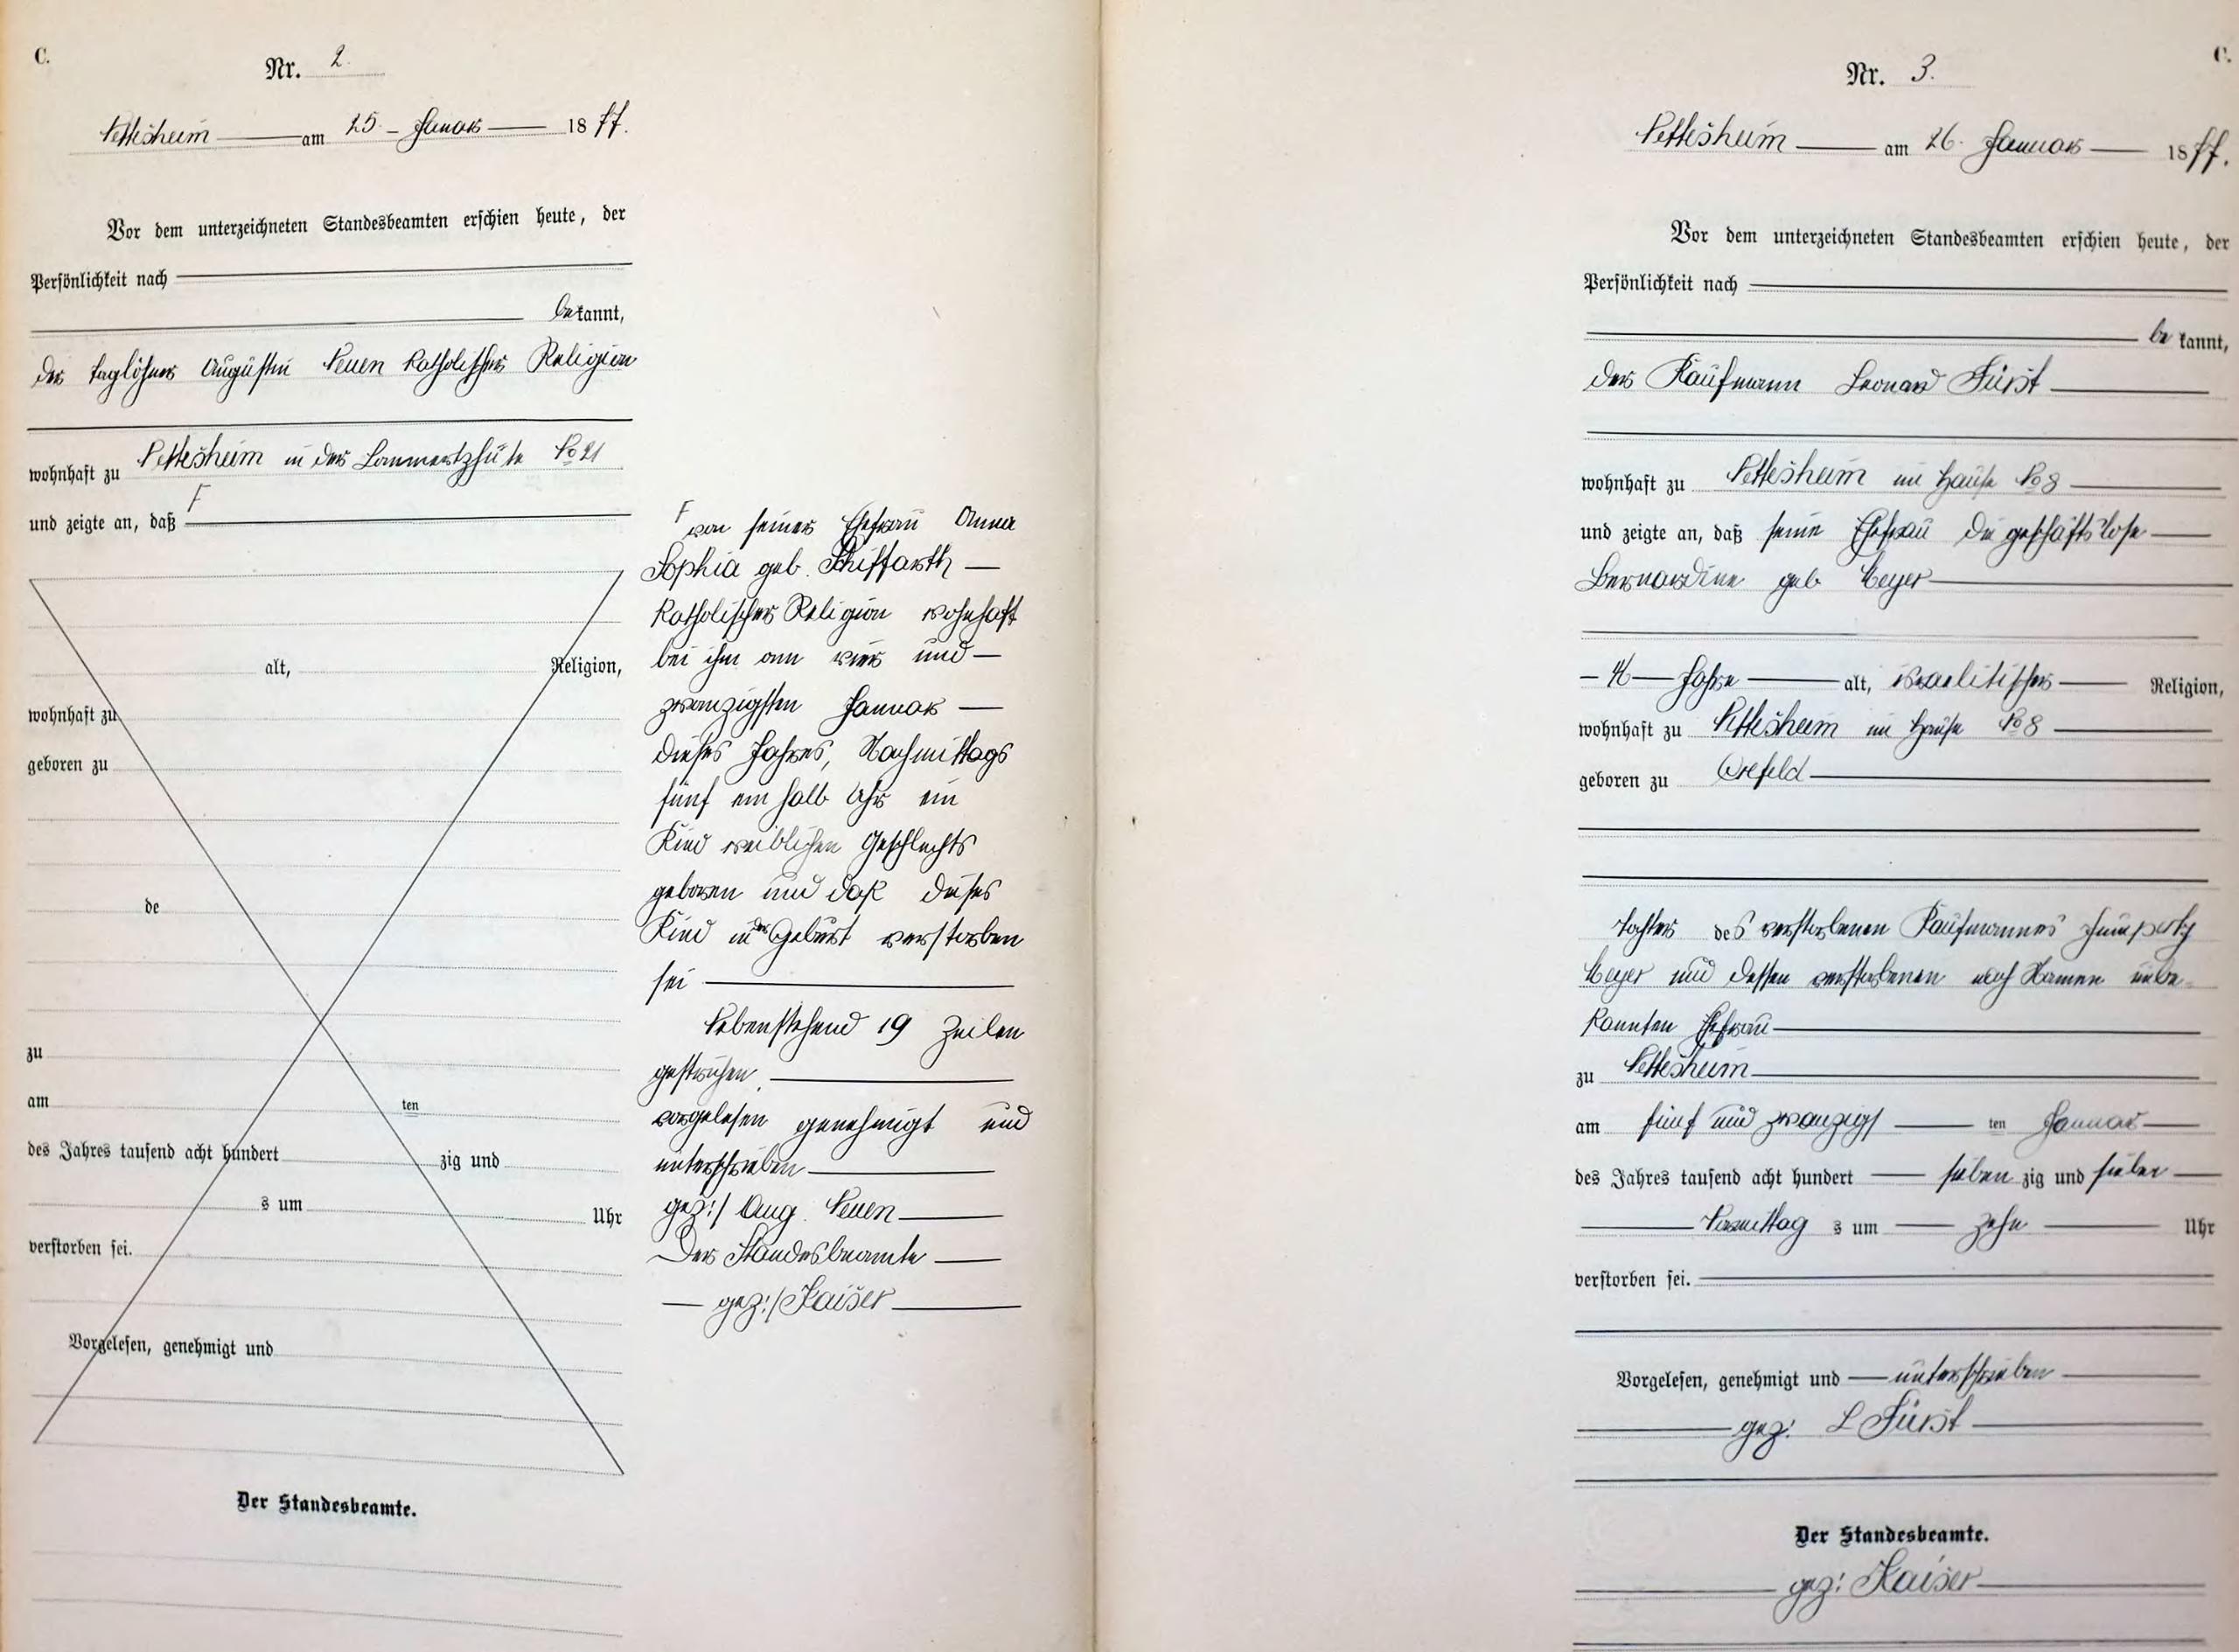 C.
Nr. 2.
Nettesheim am 25. Januar 1877.
Vor dem unterzeichneten Standesbeamten erschien heute, der
Persönlichkeit nach
bekannt,
der Taglöhner Augustin Neuen katholischer Religion
wohnhaft zu Nettesheim in der No 21
und zeigte an, daß F
alt, Religion,
wohnhaft zu
geboren zu
de
zu
am ten
des Jahres tausend acht hundert zig und
s um Uhr
verstorben sei.
Vorgelesen, genehmigt und
Der Standesbeamte.
F von seiner Ehefrau Anna
Sophia geb. Schiffarth
katholischer Religion wohnhaft
bei ihm am vier und
zwanzigsten Januar
dieses Jahres, Nachmittags
fünf ein halb Uhr ein
Kind weiblichen Geschlechts
geboren und daß dieses
Kind in der Geburt verstorben
sei
Nebenstehend 19 Zeilen
gestrichen.
vorgelesen genehmigt und
unterschrieben
gez:/ Aug. Neuen
Der Standesbeamte
gez:/ Kaiser
C.
Nr. 3.
Nettesheim am 26. Januar 1877.
Vor dem unterzeichneten Standesbeamten erschien heute, der
Persönlichkeit nach
bekannt,
der Kaufmann Leonard Fürst
wohnhaft zu Nettesheim im Hause No 8
und zeigte an, daß seine Ehefrau die geschäftslose
Bernardine geb Meyer
Jahre alt, israelitischer Religion,
wohnhaft zu Nettesheim im Hause No 8
geboren zu Crefeld
Tochter des verstorbenen Kaufmannes
Meyer und dessen verstorbenen nach Namen unbe-
kannten Ehefrau
zu Nettesheim
am fünf und zwanzigsten Januar
des Jahres tausend acht hundert siebenzig und sieben
Vormittags um zehn Uhr
verstorben sei.
Vorgelesen, genehmigt und unterschrieben
gez: L Fürst
Der Standesbeamte.
gez: Kaiser